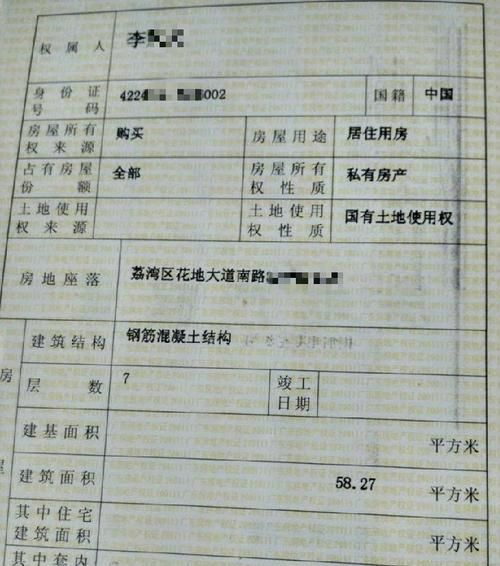 权属人 李
身份证号码 4224 6002 国籍 中国
房屋所有权来源 购买 房屋用途 居住用房
占有房屋份额 全部 房屋所有权性质 私有房产
土地使用权来源 土地使用权性质 国有土地使用权
房地座落 荔湾区花地大道南路
房
屋
建筑结构 钢筋混凝土结构
层数 7 竣工日期
建基面积 平方米
建筑面积 58.27 平方米
其中住宅建筑面积 平方米
其中套内